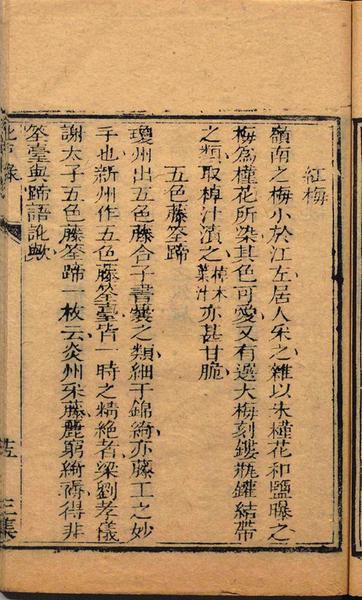 紅梅
嶺南之梅小於江左居人采之雜以朱槿花和鹽曝之
梅為槿花所染其色可愛又有選大梅刻鏤瓶罐結帶
之類取棹汁漬之棹木葉汁亦甚甘脆
五色藤筌蹄
瓊州出五色藤合子書囊之類細于錦綺亦藤工之妙
手也新州作五色藤筌臺皆一時之精絕者梁劉孝儀
謝太子五色藤筌蹄一枚云炎州采藤麗窮綺縟得非
筌臺與蹄語訛歟
北戶錄
三集